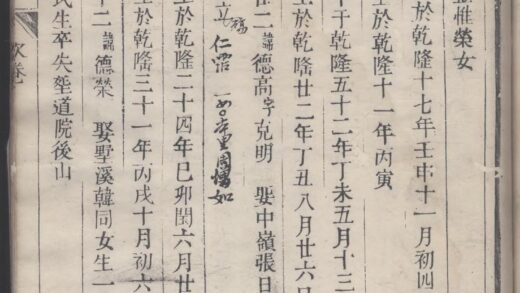 惟榮女
於乾隆十七年壬申十一月初四
於乾隆十一年丙寅
于乾隆五十二年丁未五月十三
於乾隆廿二年丁丑八月廿六日
二諱德高字克明 娶中嶺張日
仁
於乾隆二十四年己卯閏六月廿
於乾隆三十一年丙戌十月初六
二諱德榮 娶墅溪韓同女生一
氏生卒失塟道院後山
卷